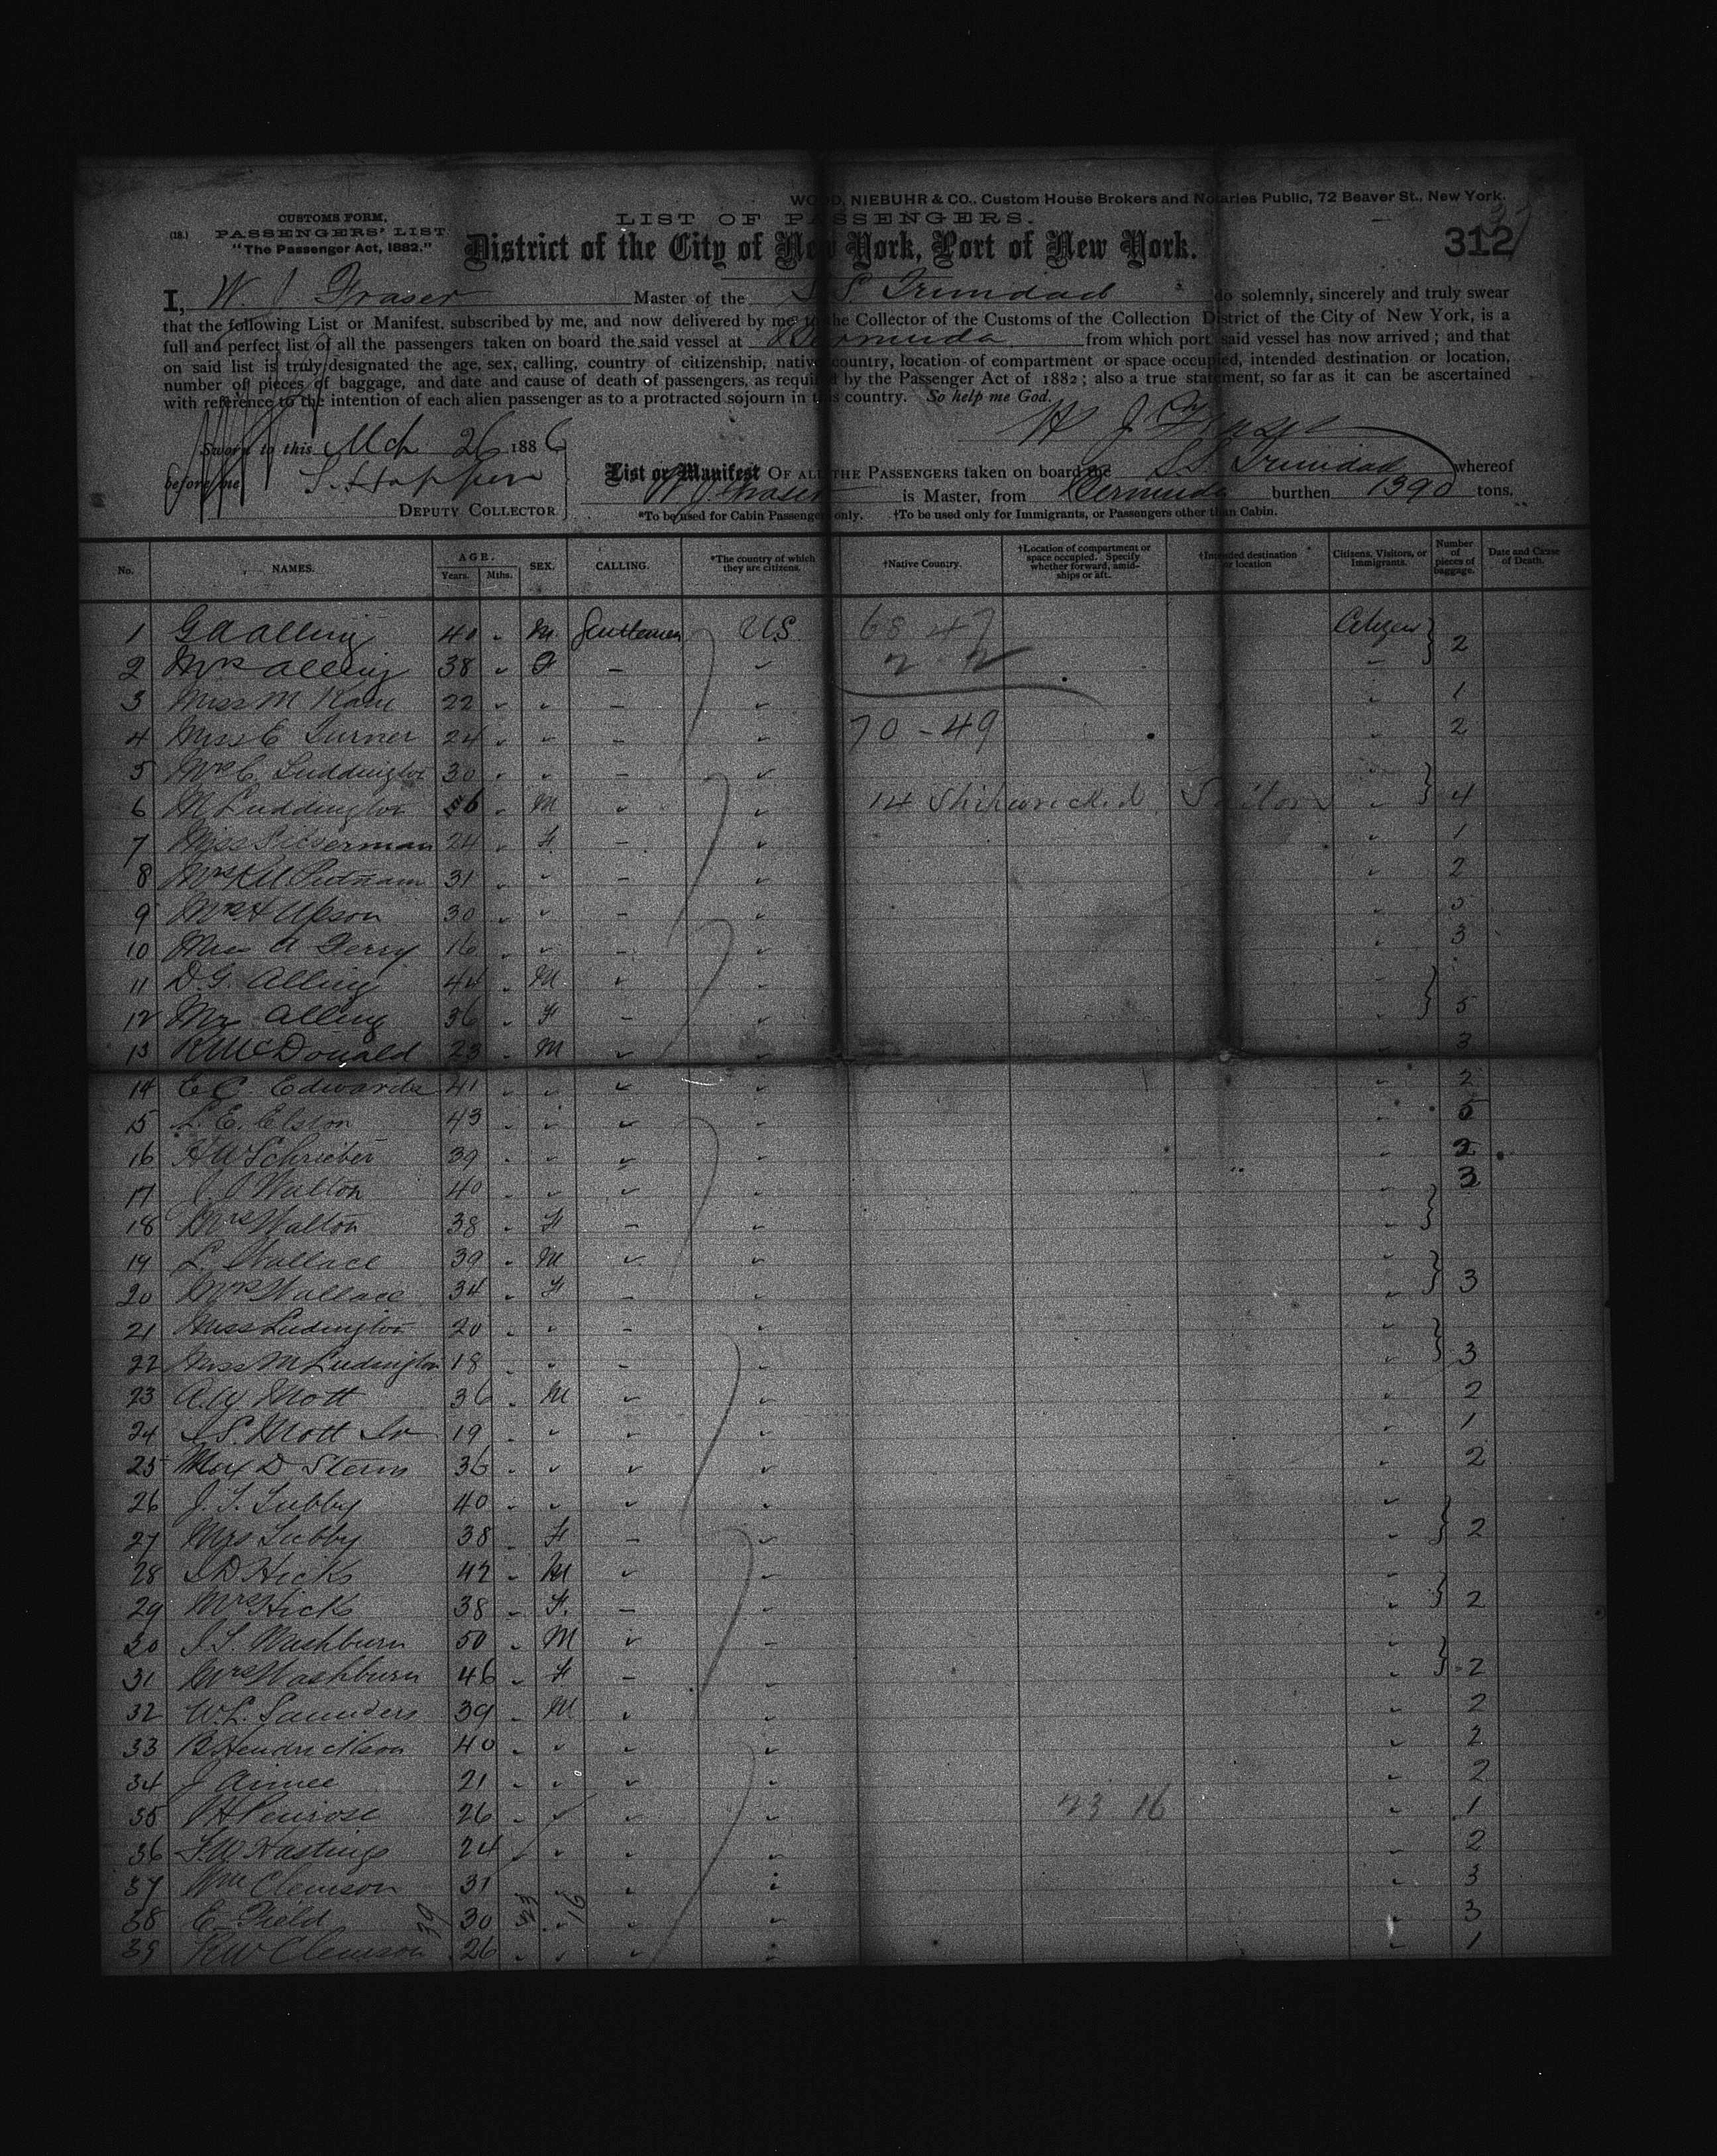 WOOD, NIEBUHR & CO., Custom House Brokers and Notaries Public, 72 Beaver St., New York.
CUSTOMS FORM,
LIST OF PASSENGERS.
(18.) PASSENGERS' LIST
"The Passenger Act, 1882."
District of the City of New York, Port of New York.
312
I, W. J. Fraser Master of the S S Trinidad do solemnly, sincerely and truly swear
that the following List or Manifest, subscribed by me, and now delivered by me to the Collector of the Customs of the Collection District of the City of New York, is a
full and perfect list of all the passengers taken on board the said vessel at Bermuda from which port said vessel has now arrived; and that
on said list is truly designated the age, sex, calling, country of citizenship, native country, location of compartment or space occupied, intended destination or location,
number of pieces of baggage, and date and cause of death of passengers, as required by the Passenger Act of 1882; also a true statement, so far as it can be ascertained
with reference to the intention of each alien passenger as to a protracted sojourn in this country. So help me God.
W J Fraser
Sworn to this Mch 26 1886
before me S. Hopper
DEPUTY COLLECTOR
List or Manifest OF ALL THE PASSENGERS taken on board the S.S. Trinidad whereof
W J Fraser is Master, from Bermuda burthen 1390 tons.
*To be used for Cabin Passengers only. †To be used only for Immigrants, or Passengers other than Cabin.
No. NAMES. AGE. Years. Mths. SEX. CALLING. *The country of which they are citizens. †Native Country. †Location of compartment or space occupied. Specify whether forward, amidships or aft. †Intended destination or location Citizens, Visitors, or Immigrants. Number of pieces of baggage. Date and Cause of Death.
1 G A Alling 40 M Gentleman U.S. 68 47 Citizen
2 Mrs Alling 38 F 2 2 2
3 Miss M Kane 22 1
4 Miss E Turner 24 70 - 49 2
5 Mrs C Luddington 30
6 M Luddington 6 M 14 Shipwrecked Sailors 4
7 Miss Silserman 24 F 1
8 Mrs Putnam 31 2
9 Mrs H Upson 30
10 A Terry 16 3
11 D.G. Alling 44 M
12 Mrs Alling 36 F 5
13 R McDonald 23 M 3
14 E C Edwards 41 2
15 L. E. Elston 43 5
16 H W Schrieber 39 2
17 J J Walton 40 3
18 Mrs Walton 38 F
19 L. Wallace 39 M
20 Mrs Wallace 34 F 3
21 Miss Ludington 20
22 Miss M Ludington 18 3
23 A. W Mott 36 M 2
24 S. Mott Jr 19 1
25 Max D Stern 36 2
26 J. T. Tubby 40
27 Mrs Tubby 38 F 2
28 D Hicks 42 M
29 Mrs Hicks 38 F. 2
30 S. Washburn 50 M
31 Mrs Washburn 46 F 2
32 W. L. Saunders 39 M 2
33 B Hendrickson 40 2
34 J Aimee 21 2
35 H Penrose 26 23 16 1
36 W Hastings 24 2
37 Wm Clemson 31 3
38 E Field 39 30 23 16 3
39 R W Clemson 26 1